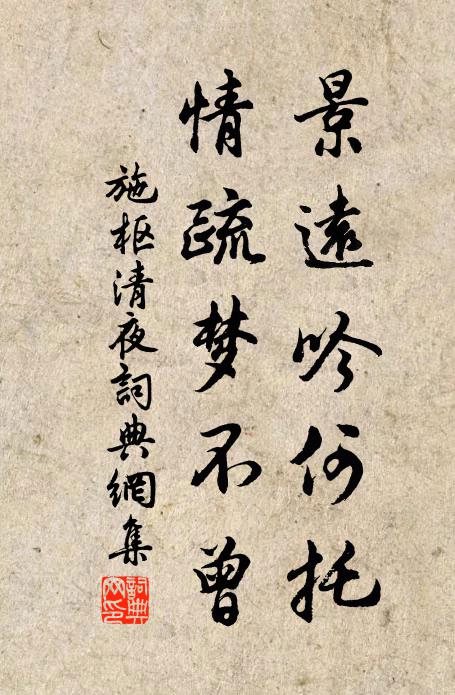 景遠吟何托
情疏梦不曾
施枢清夜詞典網集
詞典
网印